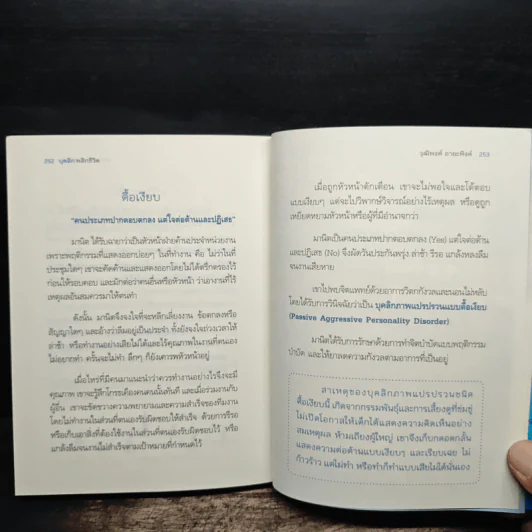 252 บุคลิก พลิกชีวิต
ดื้อเงียบ
"คนประเภทปากตอบตกลง แต่ใจต่อต้านและปฏิเสธ"
มานิต ได้รับฉายาว่าเป็นหัวหน้าฝ่ายค้านประจำหน่วยงาน
เพราะพฤติกรรมที่แสดงออกบ่อยๆ ในที่ทำงาน คือ ไม่ว่าในที่
ประชุมใดๆ เขาจะคัดค้านและแสดงออกโดยไม่ได้ตริตรองไว้
ก่อนให้รอบคอบ และมักต่อว่าคนอื่นหรือหัวหน้า ว่าเอางานที่ไร้
เหตุผลอันสมควรมาให้ตนทำ
ดังนั้น มานิตจึงจงใจที่จะหลีกเลี่ยงงาน ข้อตกลงหรือ
สัญญาใดๆ และอ้างว่าลืมอยู่เป็นประจำ ทั้งยังจงใจถ่วงเวลาให้
ล่าช้า หรือทำงานอย่างเสียไม่ได้และไร้คุณภาพในงานที่ตนเอง
ไม่อยากทำ ครั้นจะไม่ทำ ลึกๆ ก็ยังเคารพหัวหน้าอยู่
เมื่อใดที่มีคนมาแนะนำว่าควรทำงานอย่างไรจึงจะมี
คุณภาพ เขาจะรู้สึกโกรธเคืองคนคนนั้นทันที และเมื่อร่วมงานกับ
ผู้อื่น เขาจะขัดขวางความพยายามและความสำเร็จของทีมงาน
โดยไม่ทำงานในส่วนที่ตนเองรับผิดชอบให้สำเร็จ ด้วยการรีรอ
หรือเก็บเอาสิ่งที่ต้องใช้งานในส่วนที่ตนเองรับผิดชอบไว้ หรือ
แกล้งลืมจนงานไม่สำเร็จตามเป้าหมายที่กำหนดไว้
วุฒิพงศ์ ถายะพิงค์ 253
เมื่อถูกหัวหน้าตักเตือน เขาจะไม่พอใจและโต้ตอบ
แบบเงียบๆ แต่จะไปวิพากษ์วิจารณ์อย่างไร้เหตุผล หรือดูถูก
เหยียดหยามหัวหน้าหรือผู้ที่มีอำนาจกว่า
มานิตเป็นคนประเภทปากตอบตกลง (Yes) แต่ใจต่อต้าน
และปฏิเสธ (No) จึงผัดวันประกันพรุ่ง ล่าช้า รีรอ แกล้งหลงลืม
จนงานเสียหาย
เขาไปพบจิตแพทย์ด้วยอาการวิตกกังวลและนอนไม่หลับ
โดยได้รับการวินิจฉัยว่าเป็น บุคลิกภาพแปรปรวนแบบดื้อเงียบ
(Passive Aggressive Personality Disorder)
มานิตได้รับการรักษาด้วยการทำจิตบำบัดแบบพฤติกรรม
บำบัด และให้ยาลดความกังวลตามอาการที่เป็นอยู่
สาเหตุของบุคลิกภาพแปรปรวนชนิด
ดื้อเงียบนี้ เกิดจากกรรมพันธุ์และการเลี้ยงดูที่ข่มขู่
ไม่เปิดโอกาสให้เด็กได้แสดงความคิดเห็นอย่าง
สมเหตุผล ห้ามเถียงผู้ใหญ่ เขาจึงเก็บกดอดกลั้น
แสดงความต่อต้านแบบเงียบๆ และเรียบเฉย ไม่
ก้าวร้าว แต่ไม่ทำ หรือทำก็ทำแบบเสียไม่ได้นั่นเอง